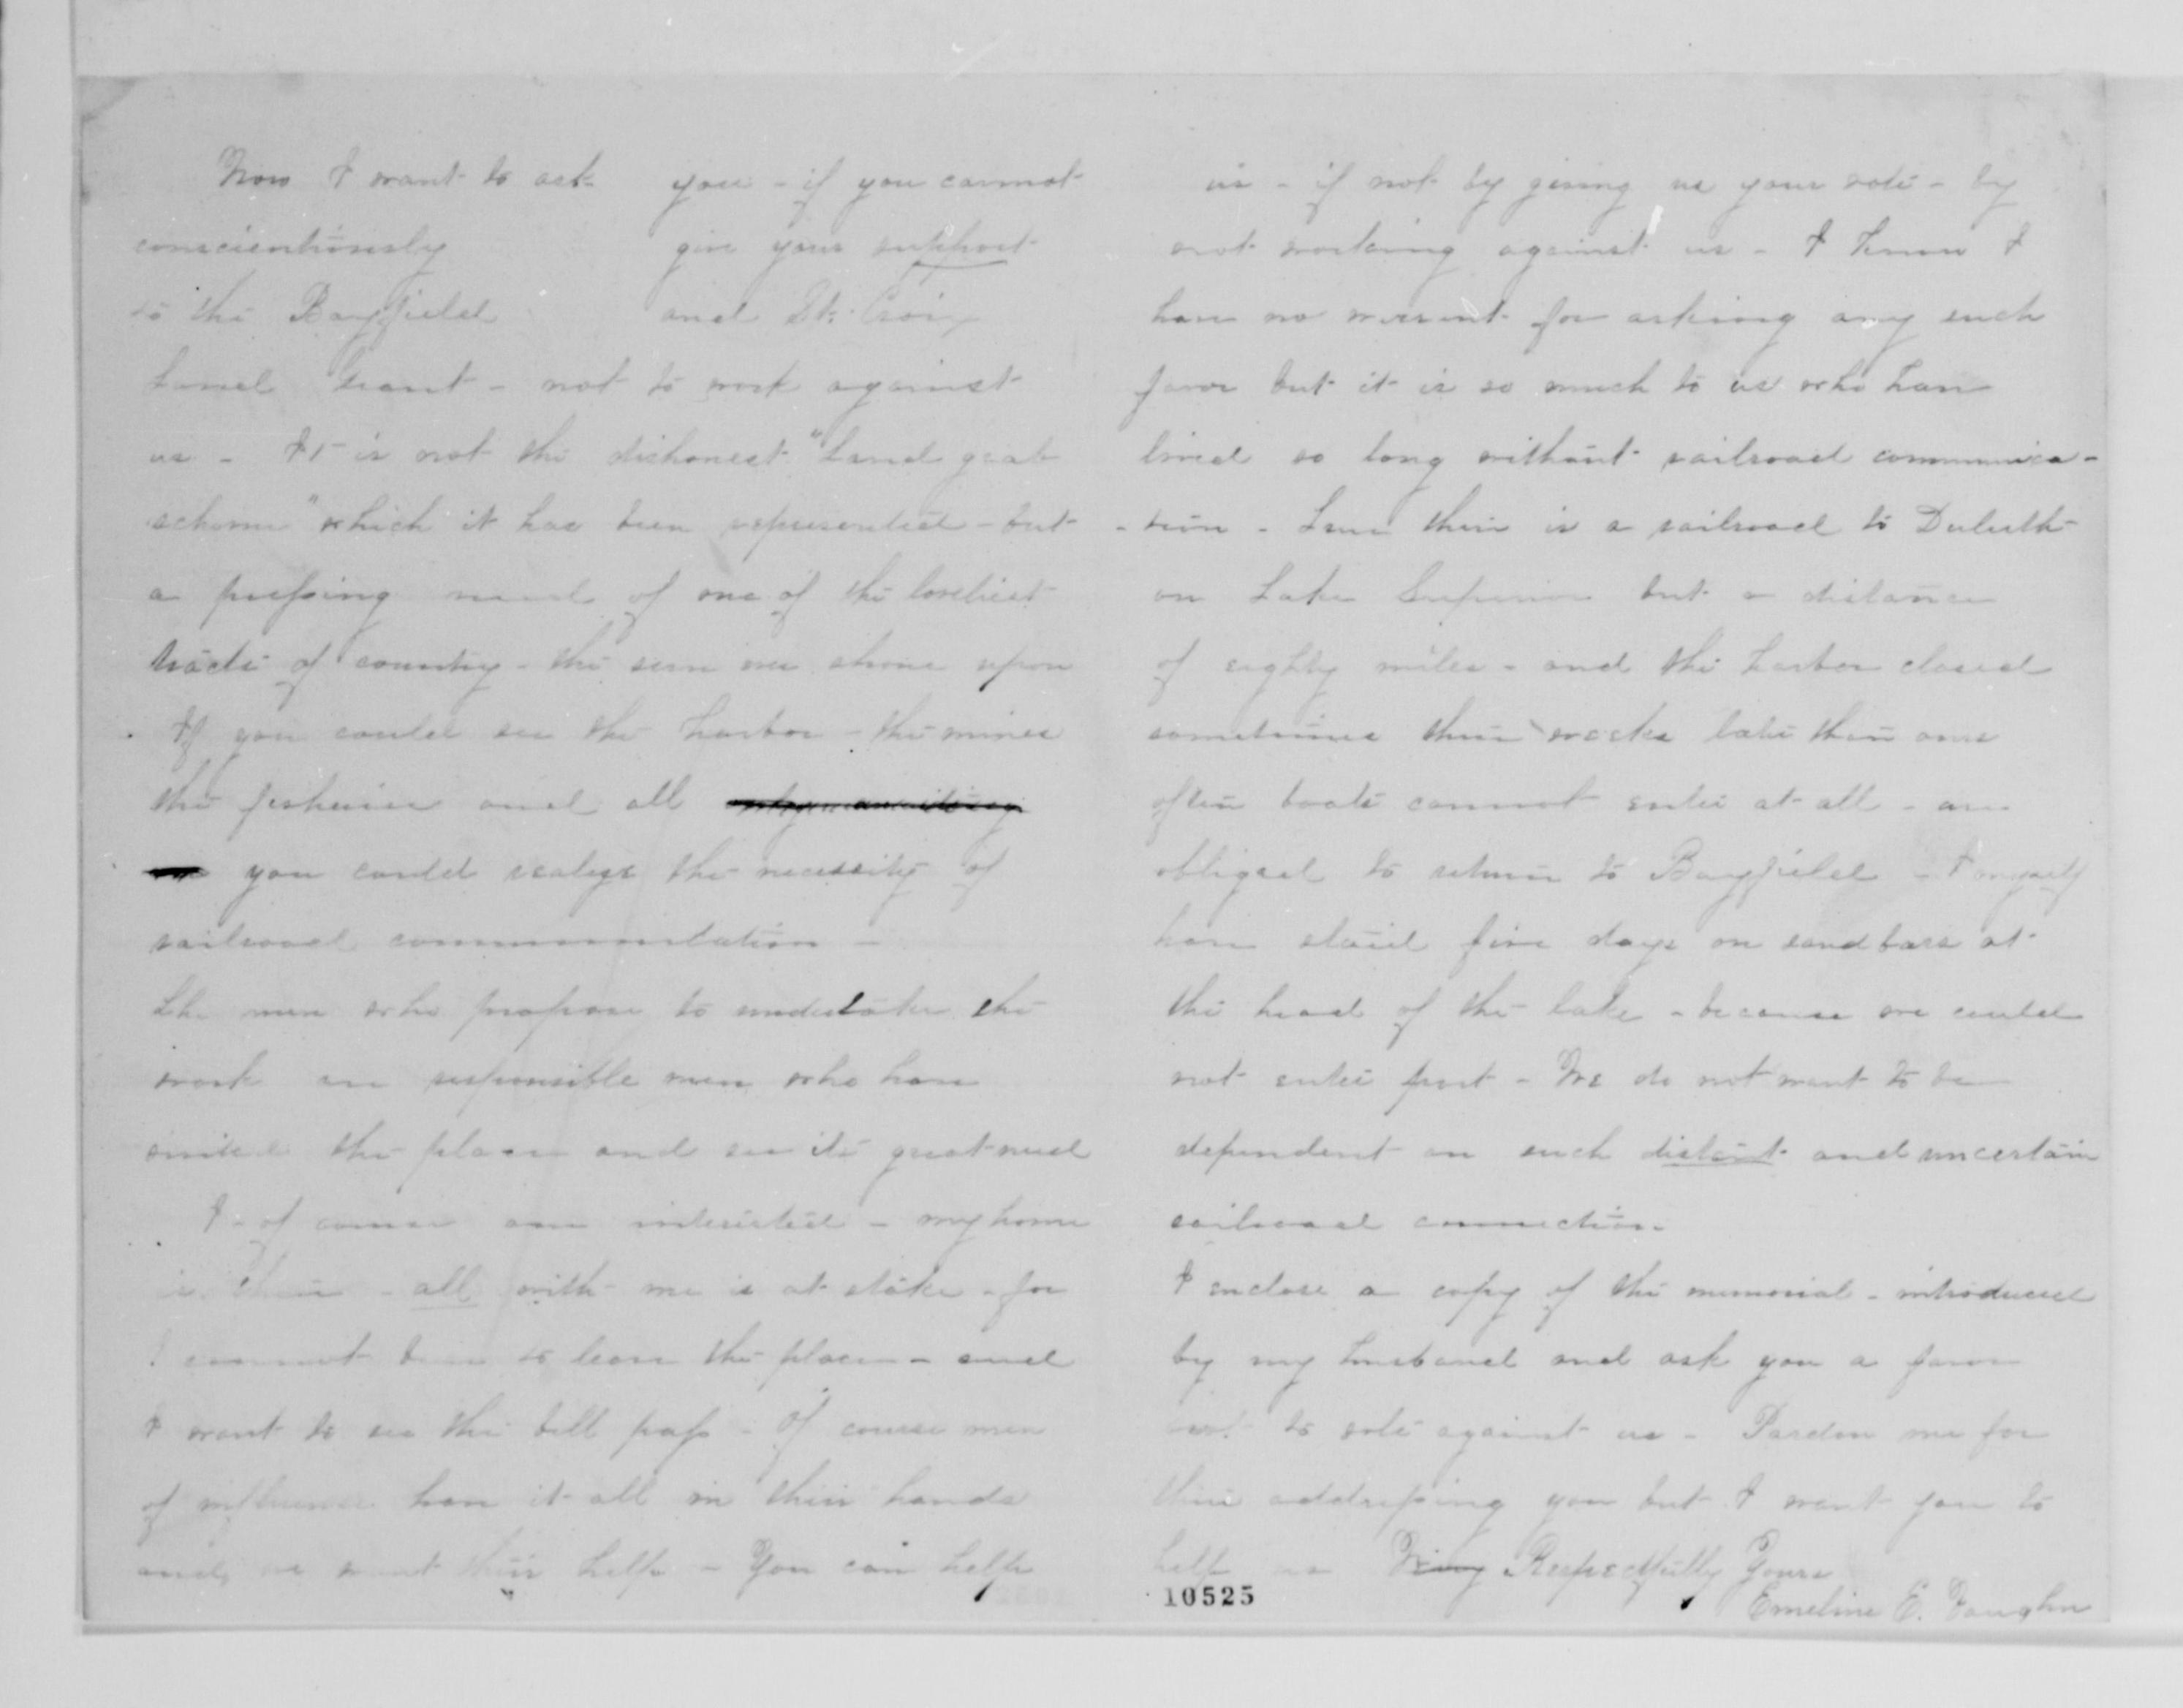 Now I want to ask you - if you cannot
conscientiously give your support
to the Bayfield and St. Croix
Land Grant - not to work against
us - It is not the dishonest "Land grab
scheme" which it has been represented - but
a pressing need of one of the loveliest
tracts of country - the sun ever shone upon
If you could see the harbor - the mines
the fisheries and all
you could realize the necessity of
railroad communication -
The men who propose to undertake the
work are responsible men who have
the place and see its great need
I - of course am interested - my home
is there - all with me is at stake - for
I cannot bear to leave the place - and
I want to see the bill pass - Of course men
of influence have it all in their hands
and we want their help - You can help
us - if not by giving us your vote - by
not working against us - I know I
have no warrant for asking any such
favor but it is so much to us who have
lived so long without railroad communica-
-tion - True there is a railroad to Duluth -
on Lake Superior but a distance
of eighty miles - and the harbor closed
sometimes three weeks later than ours
often boats cannot enter at all - are
obliged to return to Bayfield - I myself
have staid five days on sand bars at
the head of the lake - because we could
not enter port - We do not want to be
dependent on such distant and uncertain
railroad connection -
I enclose a copy of the memorial - introduced
by my husband and ask you a favor
not to vote against us - Pardon me for
thus addressing you but I want you to
help us Very Respectfully Yours
Emeline E. Vaughn
10525